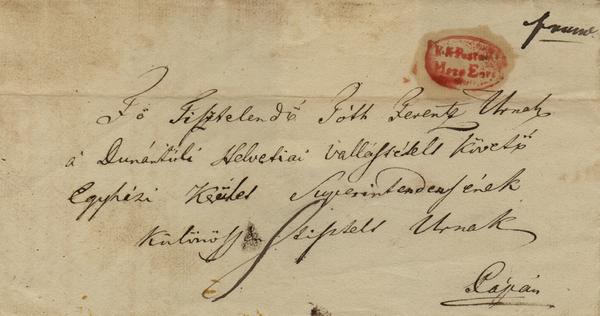 franco.
K.K. Postamt
Mező
Fő Tisztelendő Tóth Ferentz Urnak
á Dunántúli Helvetiai Vallástételt követő
Egyházi Superintendensének
Különös tisztelt Urnak
Pápán